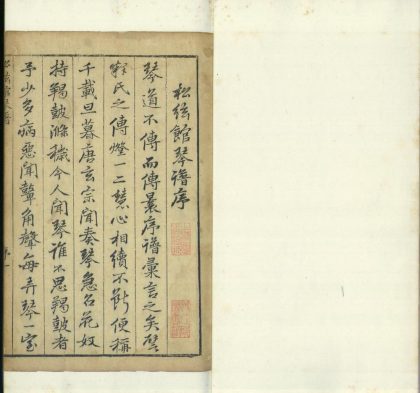 松絃館琴譜序
琴道不傳而傳曩序譜彙言之矣譬
釋氏之傳燈一二慧心相續不斷便稱
千載旦暮唐玄宗聞奏琴急召花奴
持羯鼓滌穢今人聞琴誰不思羯鼓者
予少多病惡聞鼙角聲每弄琴一室
松絃館琴譜
序一